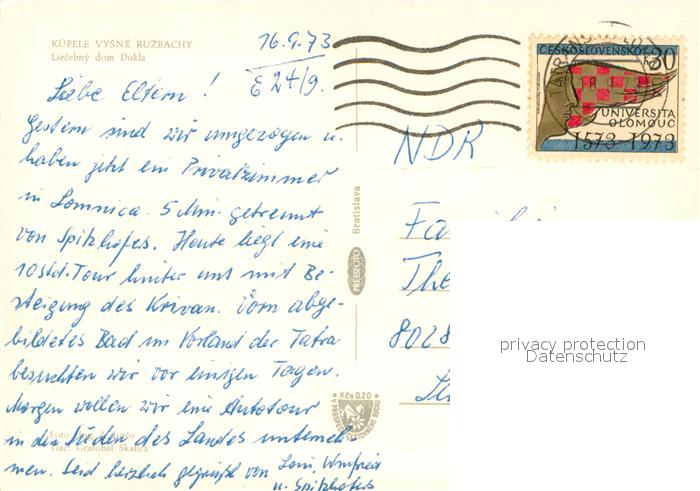 KÚPELE VYŠNÉ RUŽBACHY
Liečebný dom Dukla
16.9.73
E 24/9.
Liebe Eltern!
Gestern sind wir umgezogen u.
haben jetzt ein Privatzimmer
in Lomnica. 5 Min. getrennt
von Spitzhofers. Heute liegt eine
10std. Tour hinter uns mit Be-
steigung des Krivan. Vorn abge-
bildetes Bad im Vorland der Tatra
besuchten wir vor einigen Tagen.
Morgen wollen wir eine Autotour
in den Süden des Landes unterneh-
men. Seid herzlich gegrüßt von
Winfried
u. Spitzhofers
Foto:
Tlač: Grafobal Skalica
PRESSFOTO
Bratislava
Kčs 0.20
ČESKOSLOVENSKO 30
UNIVERSITA
OLOMOUC
1573-1973
NDR
Fa
The
8028
privacy protection
Datenschutz